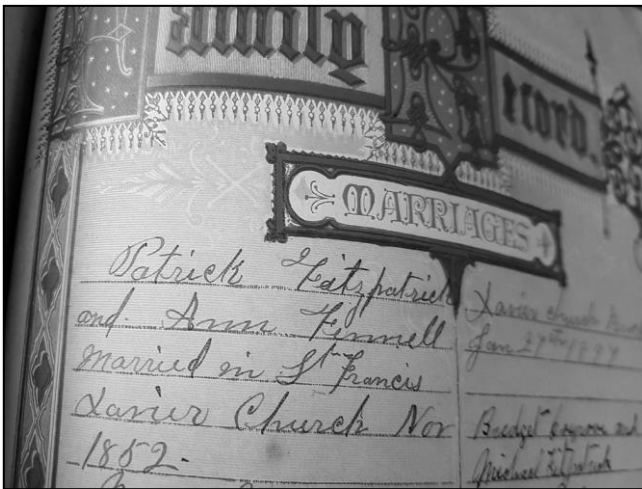 Family Record.
MARRIAGES
Patrick Fitzpatrick
and Ann Fennell
Married in St Francis
Xavier Church Nov
1852.
Xavier church
Jan 27th 1897
Bridget and
Michael Fitzpatrick